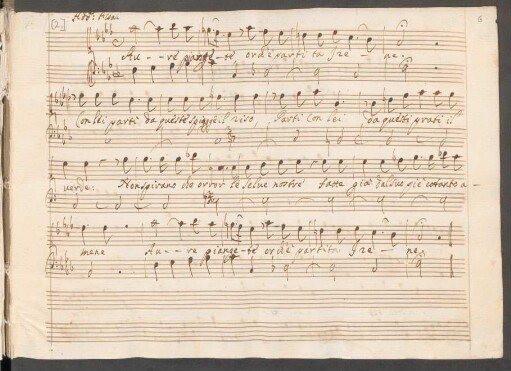 [2]
6
Au - - re piange - te or ch'è partita Ire - ne.
Con lei partì da queste spiagge il riso, Partì Con Lei da questi prati il
verde: Non spirano che orror le selve nostre fatte già dal suo piè cotanto a -
mene Au - - re piange - te or ch'è partita Ire - ne.